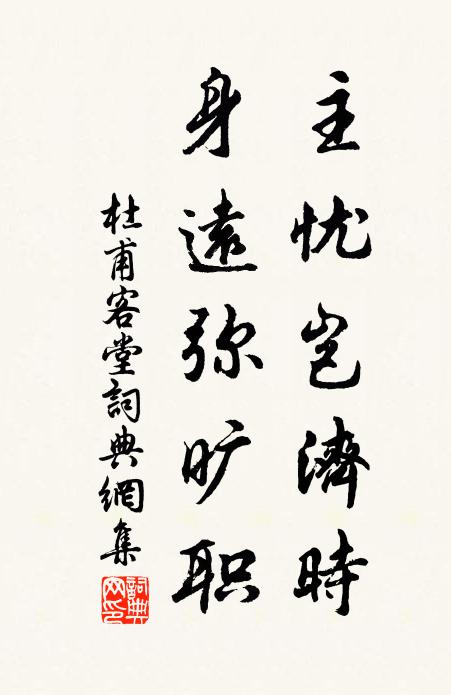 主忧岂濟時
身遠弥旷职
杜甫客堂詞典網集
詞典网印